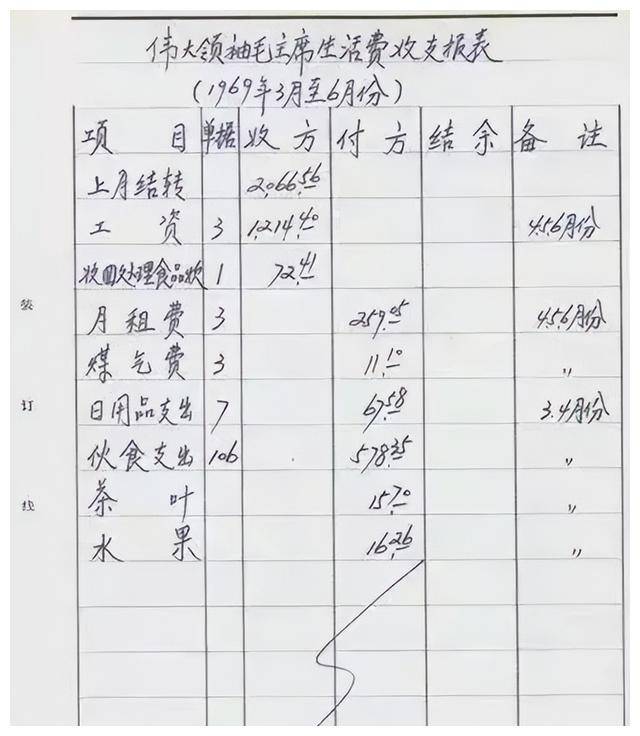 伟大领袖毛主席生活费收支报表
（1969年3月至6月份）
项目 单据 收方 付方 结余 备注
上月结转 2,066.56
工资 3 1,214.40 4.5.6月份
收回处理食品款 1 72.41
月租费 3 259.05 4.5.6月份
煤气费 3 11.10 〃
日用品支出 7 67.58 3.4月份
伙食支出 106 578.35 〃
茶叶 15.70 〃
水果 16.26 〃
装
订
线